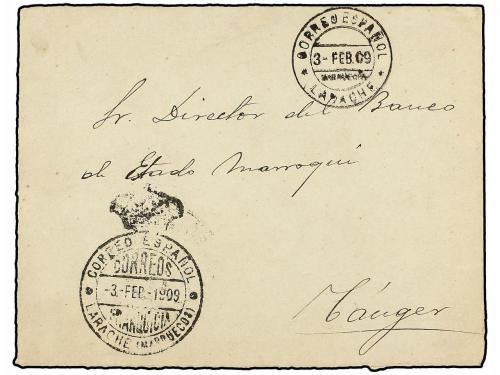 CORREO ESPAÑOL
3-FEB.09
MARRUECOS
LARACHE
Sr. Director del Banco
de Estado Marroquí
Tánger
CORREO ESPAÑOL
CORREOS
-3.-FEB.-1909
FRANQUICIA
LARACHE (MARRUECOS)